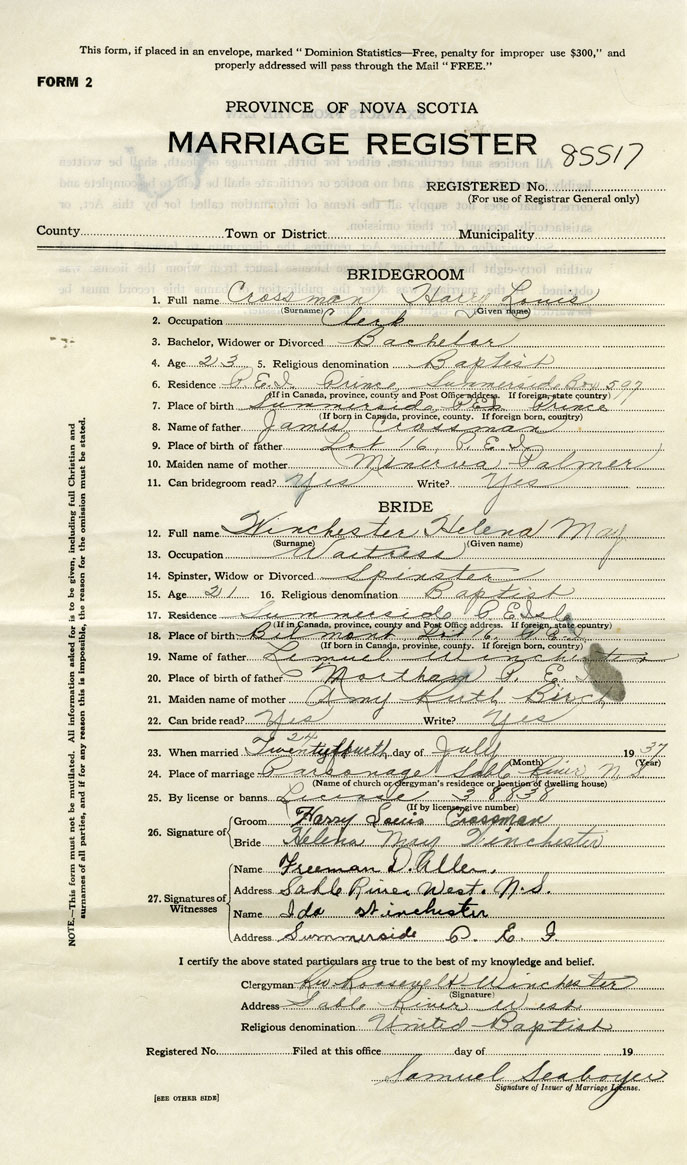 This form, if placed in an envelope, marked "Dominion Statistics—Free, penalty for improper use $300," and
properly addressed will pass through the Mail "FREE."
FORM 2
PROVINCE OF NOVA SCOTIA
MARRIAGE REGISTER 85517
REGISTERED No.
(For use of Registrar General only)
County Town or District Municipality
BRIDEGROOM
1. Full name Crossman Harry Louis
(Surname) (Given name)
2. Occupation Clerk
3. Bachelor, Widower or Divorced Bachelor
4. Age 23 5. Religious denomination Baptist
6. Residence P.E.I. Prince Summerside Box 597
(If in Canada, province, county and Post Office address. If foreign, state country)
7. Place of birth Summerside P.E.I. Prince
(If born in Canada, province, county. If foreign born, country)
8. Name of father James Crossman
9. Place of birth of father Lot 16, P. E. I.
10. Maiden name of mother Minerva Palmer
11. Can bridegroom read? Yes Write? Yes
BRIDE
12. Full name Winchester Helena May
(Surname) (Given name)
13. Occupation Waitress
14. Spinster, Widow or Divorced Spinster
15. Age 21 16. Religious denomination Baptist
17. Residence Summerside P. E. Isl
(If in Canada, province, county and Post Office address. If foreign, state country)
18. Place of birth Belmont Lot 16,
(If born in Canada, province, county. If foreign born, country)
19. Name of father Lemuel Winchester
20. Place of birth of father P. E. I.
21. Maiden name of mother Amy Ruth Birch
22. Can bride read? Yes Write? Yes
24
23. When married Twentyfourth day of July 19 37
(Month) (Year)
24. Place of marriage Parsonage Sable River N.S.
(Name of church or clergyman's residence or location of dwelling house)
25. By license or banns License 38838
(If by license, give number)
26. Signature of Groom Harry Louis Crossman
Bride Helena May Winchester
27. Signatures of Witnesses Name Freeman D Allen.
Address Sable River West. N.S.
Name Ida Winchester
Address Summerside P. E. I.
I certify the above stated particulars are true to the best of my knowledge and belief.
Clergyman Rev Roosevelt Winchester
(Signature)
Address Sable River West
Religious denomination United Baptist
Registered No. Filed at this office day of 19
Samuel Seaboyer
Signature of Issuer of Marriage License.
[SEE OTHER SIDE]
NOTE.—This form must not be mutilated. All information asked for is to be given, including full Christian and
surnames of all parties, and if for any reason this is impossible, the reason for the omission must be stated.